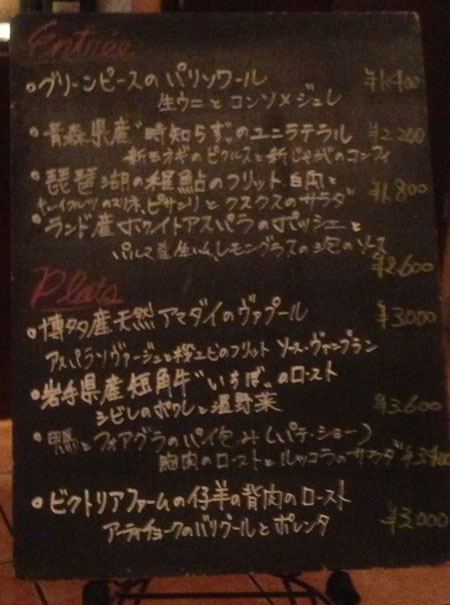 Entrée
・グリーンピースのパリソワール ¥1,400
生ウニとコンソメジュレ
・青森県産"時知らず"のユニラテラル ¥2,200
新玉ネギのピクルスと新じゃがのコンフィ
・琵琶湖の稚鮎のフリット 白瓜と ¥1,800
キューイフルーツのマリネ、ピサンリとクスクスのサラダ
・ランド産ホワイトアスパラのポッシェと
パルマ産生ハム、レモングラスの泡のソース
¥2,600
Plats
・博多産天然アマダイのヴァプール ¥3,000
アスパラソヴァージュと桜エビのフリット ソース・ヴァンブラン
・岩手県産短角牛"いちぼ"のロースト
シビレのポワレと温野菜 ¥3,600
・鴨とフォアグラのパイ包み(パテ・ショー)
胸肉のローストとルッコラのサラダ
・ビクトリアファームの仔羊の背肉のロースト
アーティチョークのバリグールとポレンタ ¥3,000